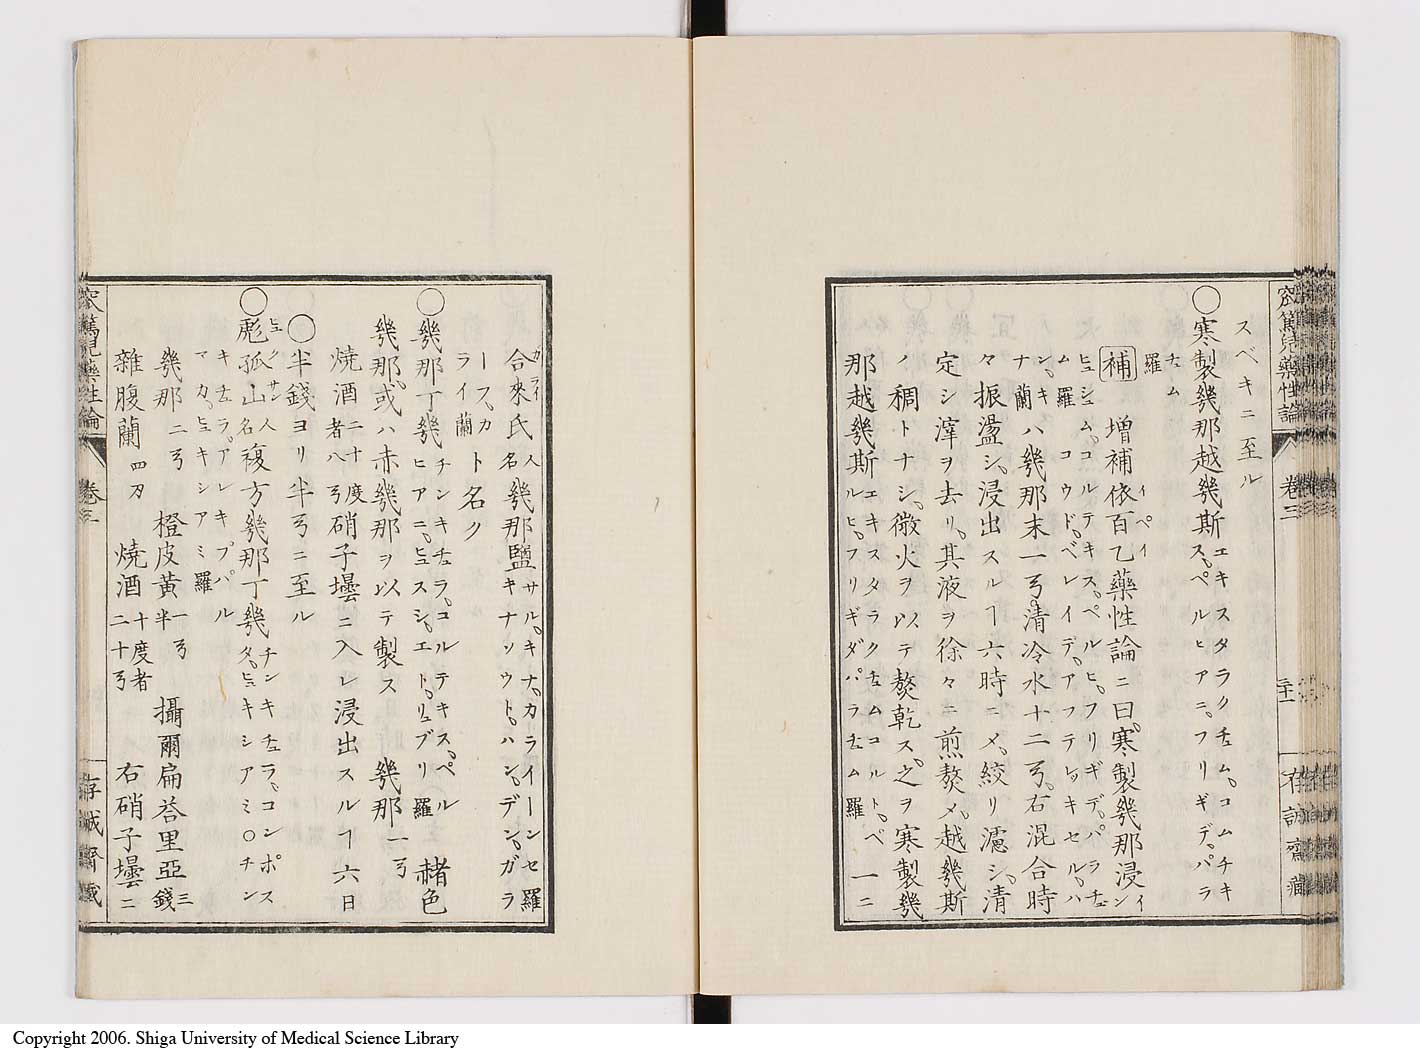 スベキニ至ル
〇寒製幾那越幾斯エキスタラクチュム、コムチキス、ペルヒアニ、フリギデ、パラチュム羅
補 増補依百乙薬性論ニ曰、寒製幾那浸イン
ヒュシュム、コルテキス、ペルヒ、フリギデ、パラチュム羅コウド、ベレイデ、アフテレッキセル、ハン、キナ蘭ハ幾那末一弓、清冷水十二弓、右混合時
々振盪シ、浸出スルヿ六時ニメ、絞リ濾シ、清
定シ滓ヲ去リ、其液ヲ徐々ニ煎熬メ、越幾斯
ノ稠トナシ、微火ヲ以テ熬乾ス、之ヲ寒製幾
那越幾斯エキスタラクチュムコルト、ペルヒ、フリギダパラチュム羅 一ニ
窊篤児薬性論 巻三 二十一 存誠齋蔵
合來氏人名幾那鹽サル、キナ、カライーンセ羅キナソウト、ハン、デン、ガラ
ーフ、カライ蘭ト名ク
〇幾那丁幾チンキチュラ、コルテキス、ペルヒアニ、ヒュスシ、エト、リュブリ羅 赭色
幾那、或ハ赤幾那ヲ以テ製ス 幾那一弓
焼酒二十度者八弓硝子壜ニ入レ浸出スルヿ六日
〇半錢ヨリ半弓ニ至ル
〇彪孤山人名複方幾那丁幾チンキチュラ、コンポスタ、ヒュキシアミ〇チン
キチュラ、アレキプパルマカ、ヒュキシアミ羅
幾那二弓 橙皮黄一弓半 攝爾扁荅里亞三錢
雑腹蘭四刄 焼酒二十度者二十弓 右硝子壜ニ
窊篤児薬性論 巻三 存誠齋蔵
Copyright 2006. Shiga University of Medical Science Library